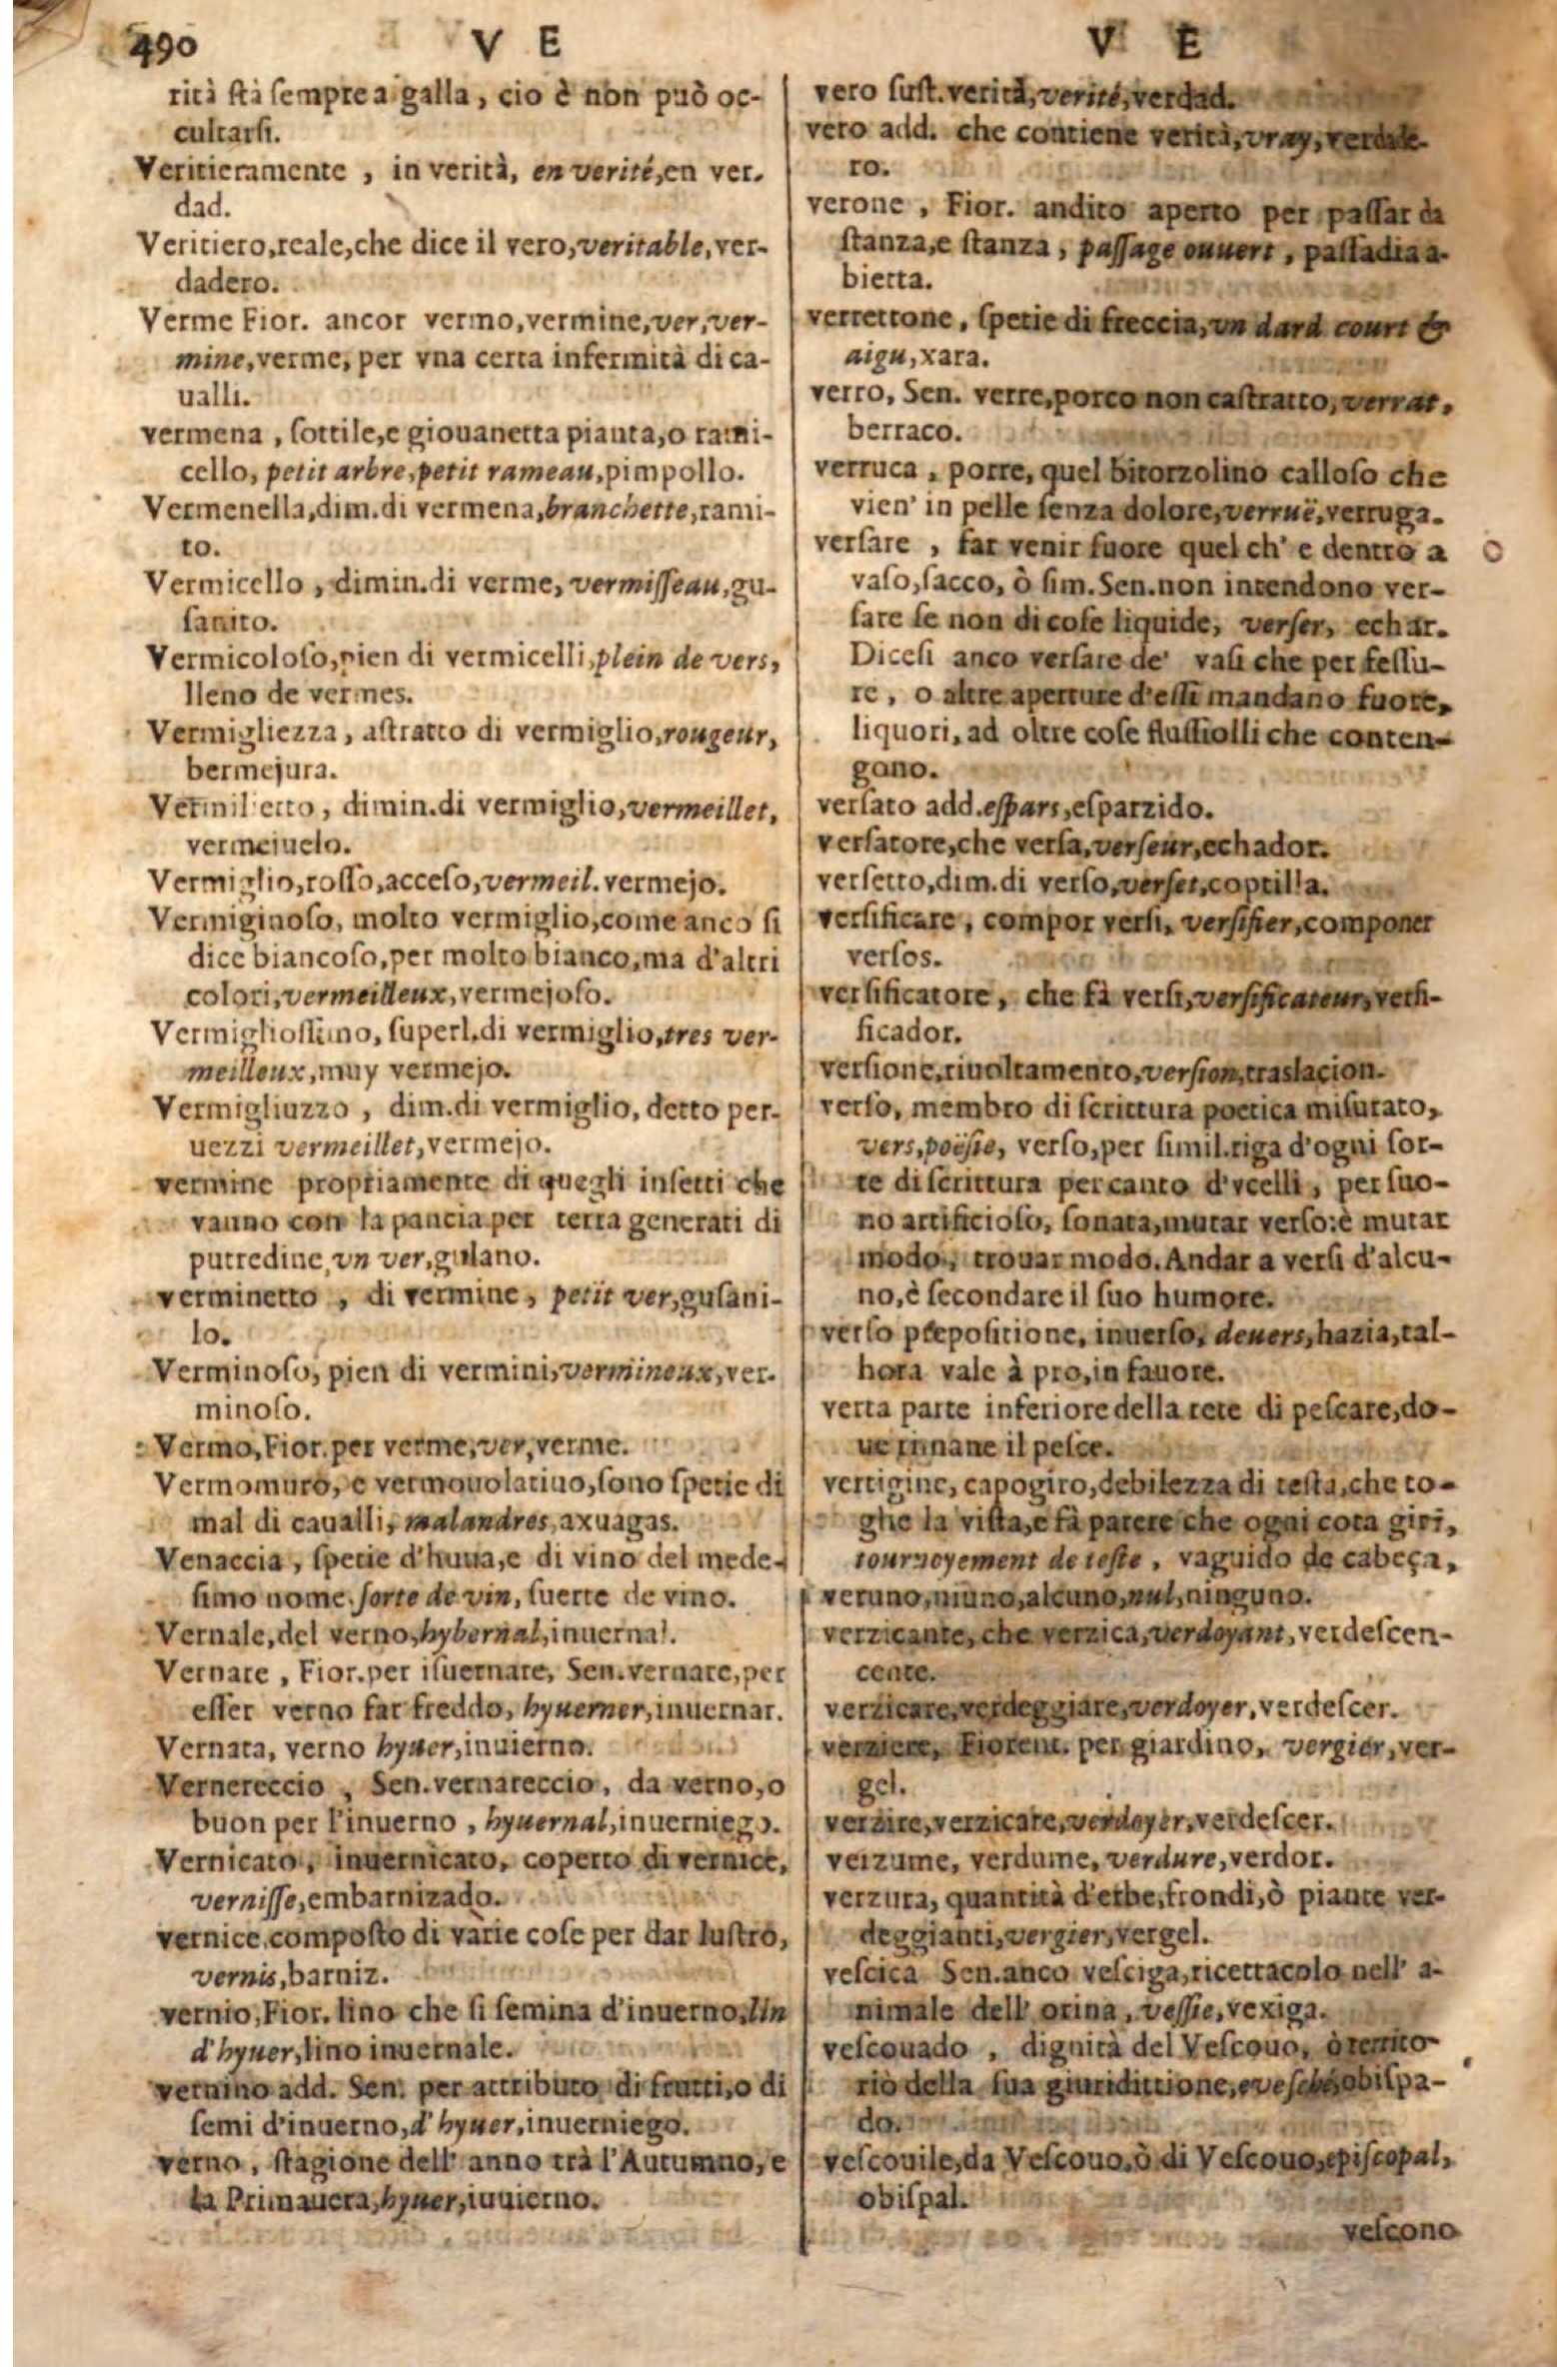 490 V E
rità ſtà ſempre a galla, cio è non può oc-
cultarſi.
Veritieramente , in verità, en verité,en ver-
dad.
Veritiero,reale,che dice il vero,veritable,ver-
dadero.
Verme Fior. ancor vermo,vermine,ver,ver-
mine,verme, per vna certa infermità di ca-
ualli.
vermena , ſottile,e giouanetta pianta,o rami-
cello, petit arbre,petit rameau,pimpollo.
Vermenella,dim.di vermena,branchette,rami-
to.
Vermicello , dimin.di verme, vermiſſeau,gu-
ſanito.
Vermicoloſo,pien di vermicelli,plein de vers,
lleno de vermes.
Vermigliezza, aſtratto di vermiglio,rougeur,
bermejura.
Vermilietto , dimin.di vermiglio,vermeillet,
vermejuelo.
Vermiglio,roſſo,acceſo,vermeil.vermejo.
Vermiginoſo, molto vermiglio,come anco ſi
dice biancoſo,per molto bianco,ma d'altri
colori,vermeilleux,vermejoſo.
Vermiglioſſimo, ſuperl.di vermiglio,tres ver-
meilleux,muy vermejo.
Vermigliuzzo , dim.di vermiglio, detto per-
uezzi vermeillet,vermejo.
vermine propriamente di quegli inſetti che
vanno con la pancia per terra generati di
putredine,vn ver,guſano.
verminetto , di vermine, petit ver,guſani-
lo.
Verminoſo, pien di vermini,vermineux,ver-
minoſo.
Vermo,Fior.per verme,ver,verme.
Vermomuro, e vermouolatiuo,ſono ſpetie di
mal di caualli, malandres,axuagas.
Venaccia , ſpetie d'huua,e di vino del mede-
ſimo nome.ſorte de vin, ſuerte de vino.
Vernale,del verno,hybernal,inuernal.
Vernare , Fior.per iſuernare, Sen.vernare,per
eſſer verno far freddo, hyuerner,inuernar.
Vernata, verno hyuer,inuierno.
Vernereccio , Sen.vernareccio, da verno,o
buon per l'inuerno , hyuernal,inuerniego.
Vernicato, inuernicato, coperto di vernice,
verniſſe,embarnizado.
vernice,compoſto di varie coſe per dar luſtro,
vernis,barniz.
vernio,Fior.lino che ſi ſemina d'inuerno,lin
d'hyuer,lino inuernale.
vernino add. Sen. per attributo di frutti,o di
ſemi d'inuerno,d'hyuer,inuerniego.
verno , ſtagione dell' anno trà l'Autumno, e
la Primauera,hyuer,iuuierno.
V E
vero ſuſt.verità,verité,verdad.
vero add. che contiene verità,vray,verdade-
ro.
verone , Fior. andito aperto per paſſar da
ſtanza,e ſtanza , paſſage ouuert , paſſadiaa-
bierta.
verrettone, ſpetie di freccia,vn dard court &
aigu,xara.
verro, Sen. verre,porco non caſtratto,verrat,
berraco.
verruca , porre, quel bitorzolino calloſo che
vien' in pelle ſenza dolore,verruë,verruga.
verſare , far venir fuore quel ch' e dentro a
vaſo,ſacco, ò ſim.Sen.non intendono ver-
ſare ſe non di coſe liquide, verſer, echar.
Diceſi anco verſare de' vaſi che per feſſu-
re , o altre aperture d'eſſi mandano fuore,
liquori, ad oltre coſe fluſſiolli che conten-
gono.
verſato add.eſpars,eſparzido.
verſatore,che verſa,verſeur,echador.
verſetto,dim.di verſo,verſet,coptilla.
verſificare , compor verſi, verſifier,componer
verſos.
verſificatore, che fà verſi,verſificateur,verſi-
ficador.
verſione,riuoltamento,verſion,traslacion.
verſo, membro di ſcrittura poetica miſurato,
vers,poëſie, verſo,per ſimil.riga d'ogni ſor-
te di ſcrittura per canto d'vcelli, per ſuo-
no artificioſo, ſonata,mutar verſo:è mutar
modo, trouar modo.Andar a verſi d'alcu-
no,è ſecondare il ſuo humore.
verſo prepoſitione, inuerſo, deuers,hazia,tal-
hora vale à pro,in fauore.
verta parte inferiore della rete di peſcare,do-
ue rimane il peſce.
vertigine, capogiro,debilezza di teſta,che to-
glie la viſta,e fà parere che ogni coſa giri,
tournoyement de teſte , vaguido de cabeça,
veruno,niuno,alcuno,nul,ninguno.
verzicante, che verzica,verdoyant,verdeſcen-
cente.
verzicare,verdeggiare,verdoyer,verdeſcer.
verziere, Fiorent. per giardino, vergier,ver-
gel.
verzire,verzicare,verdoyer,verdeſcer.
verzume, verdume, verdure,verdor.
verzura, quantità d'erbe,frondi,ò piante ver-
deggianti,vergier,vergel.
veſcica Sen.anco veſciga,ricettacolo nell' a-
nimale dell' orina, veſſie,vexiga.
veſcouado , dignità del Veſcouo, ò territo-
rio della ſua giuridittione,eveſché,obiſpa-
do.
veſcouile,da Veſcouo,ò di Veſcouo,epiſcopal,
obiſpal.
veſcono